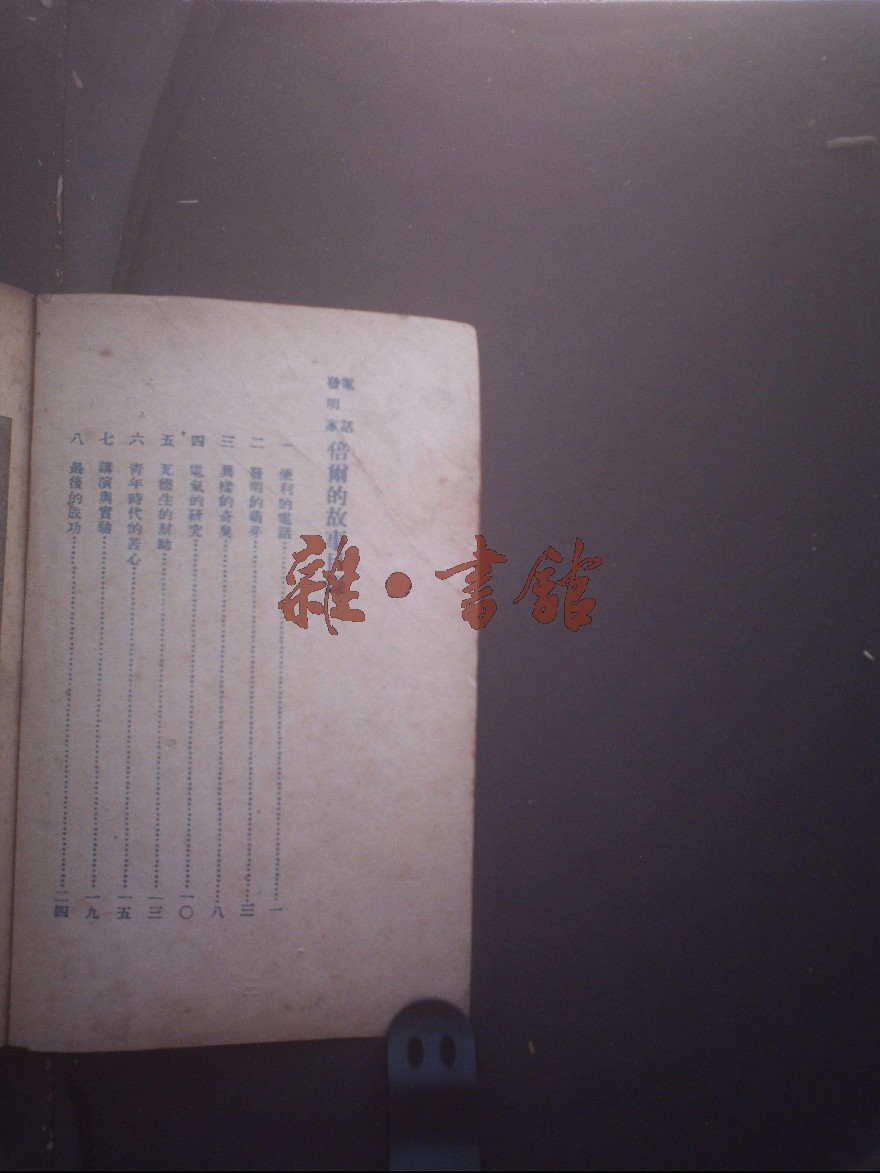 電話發明家 倍爾的故事目錄
一 便利的電話⋯⋯一
二 發明的萌芽⋯⋯三
三 異樣的奇臭⋯⋯八
四 電氣的研究⋯⋯一〇
五 瓦德生的幫助⋯⋯一三
六 青年時代的苦心⋯⋯一五
七 講演與實驗⋯⋯一九
八 最後的成功⋯⋯二四
雜·書館